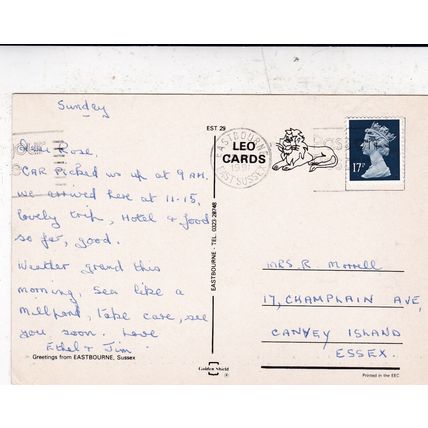 Sunday
Dear Rose,
CAR Picked us up at 9 AM.
we arrived here at 11-15,
lovely trip, Hotel & food
so far, good.
Weather grand this
morning, sea like a
millpond, take care, see
you soon. Love
Ethel & Jim
Greetings from EASTBOURNE, Sussex
EST. 29
LEO
CARDS
EASTBOURNE - TEL. 0323 28748
Golden Shield
EASTBOURNE
EAST SUSSEX
17P
MRS R Morrell
17, CHAMPLAIN AVE,
CANVEY ISLAND
ESSEX.
Printed in the EEC